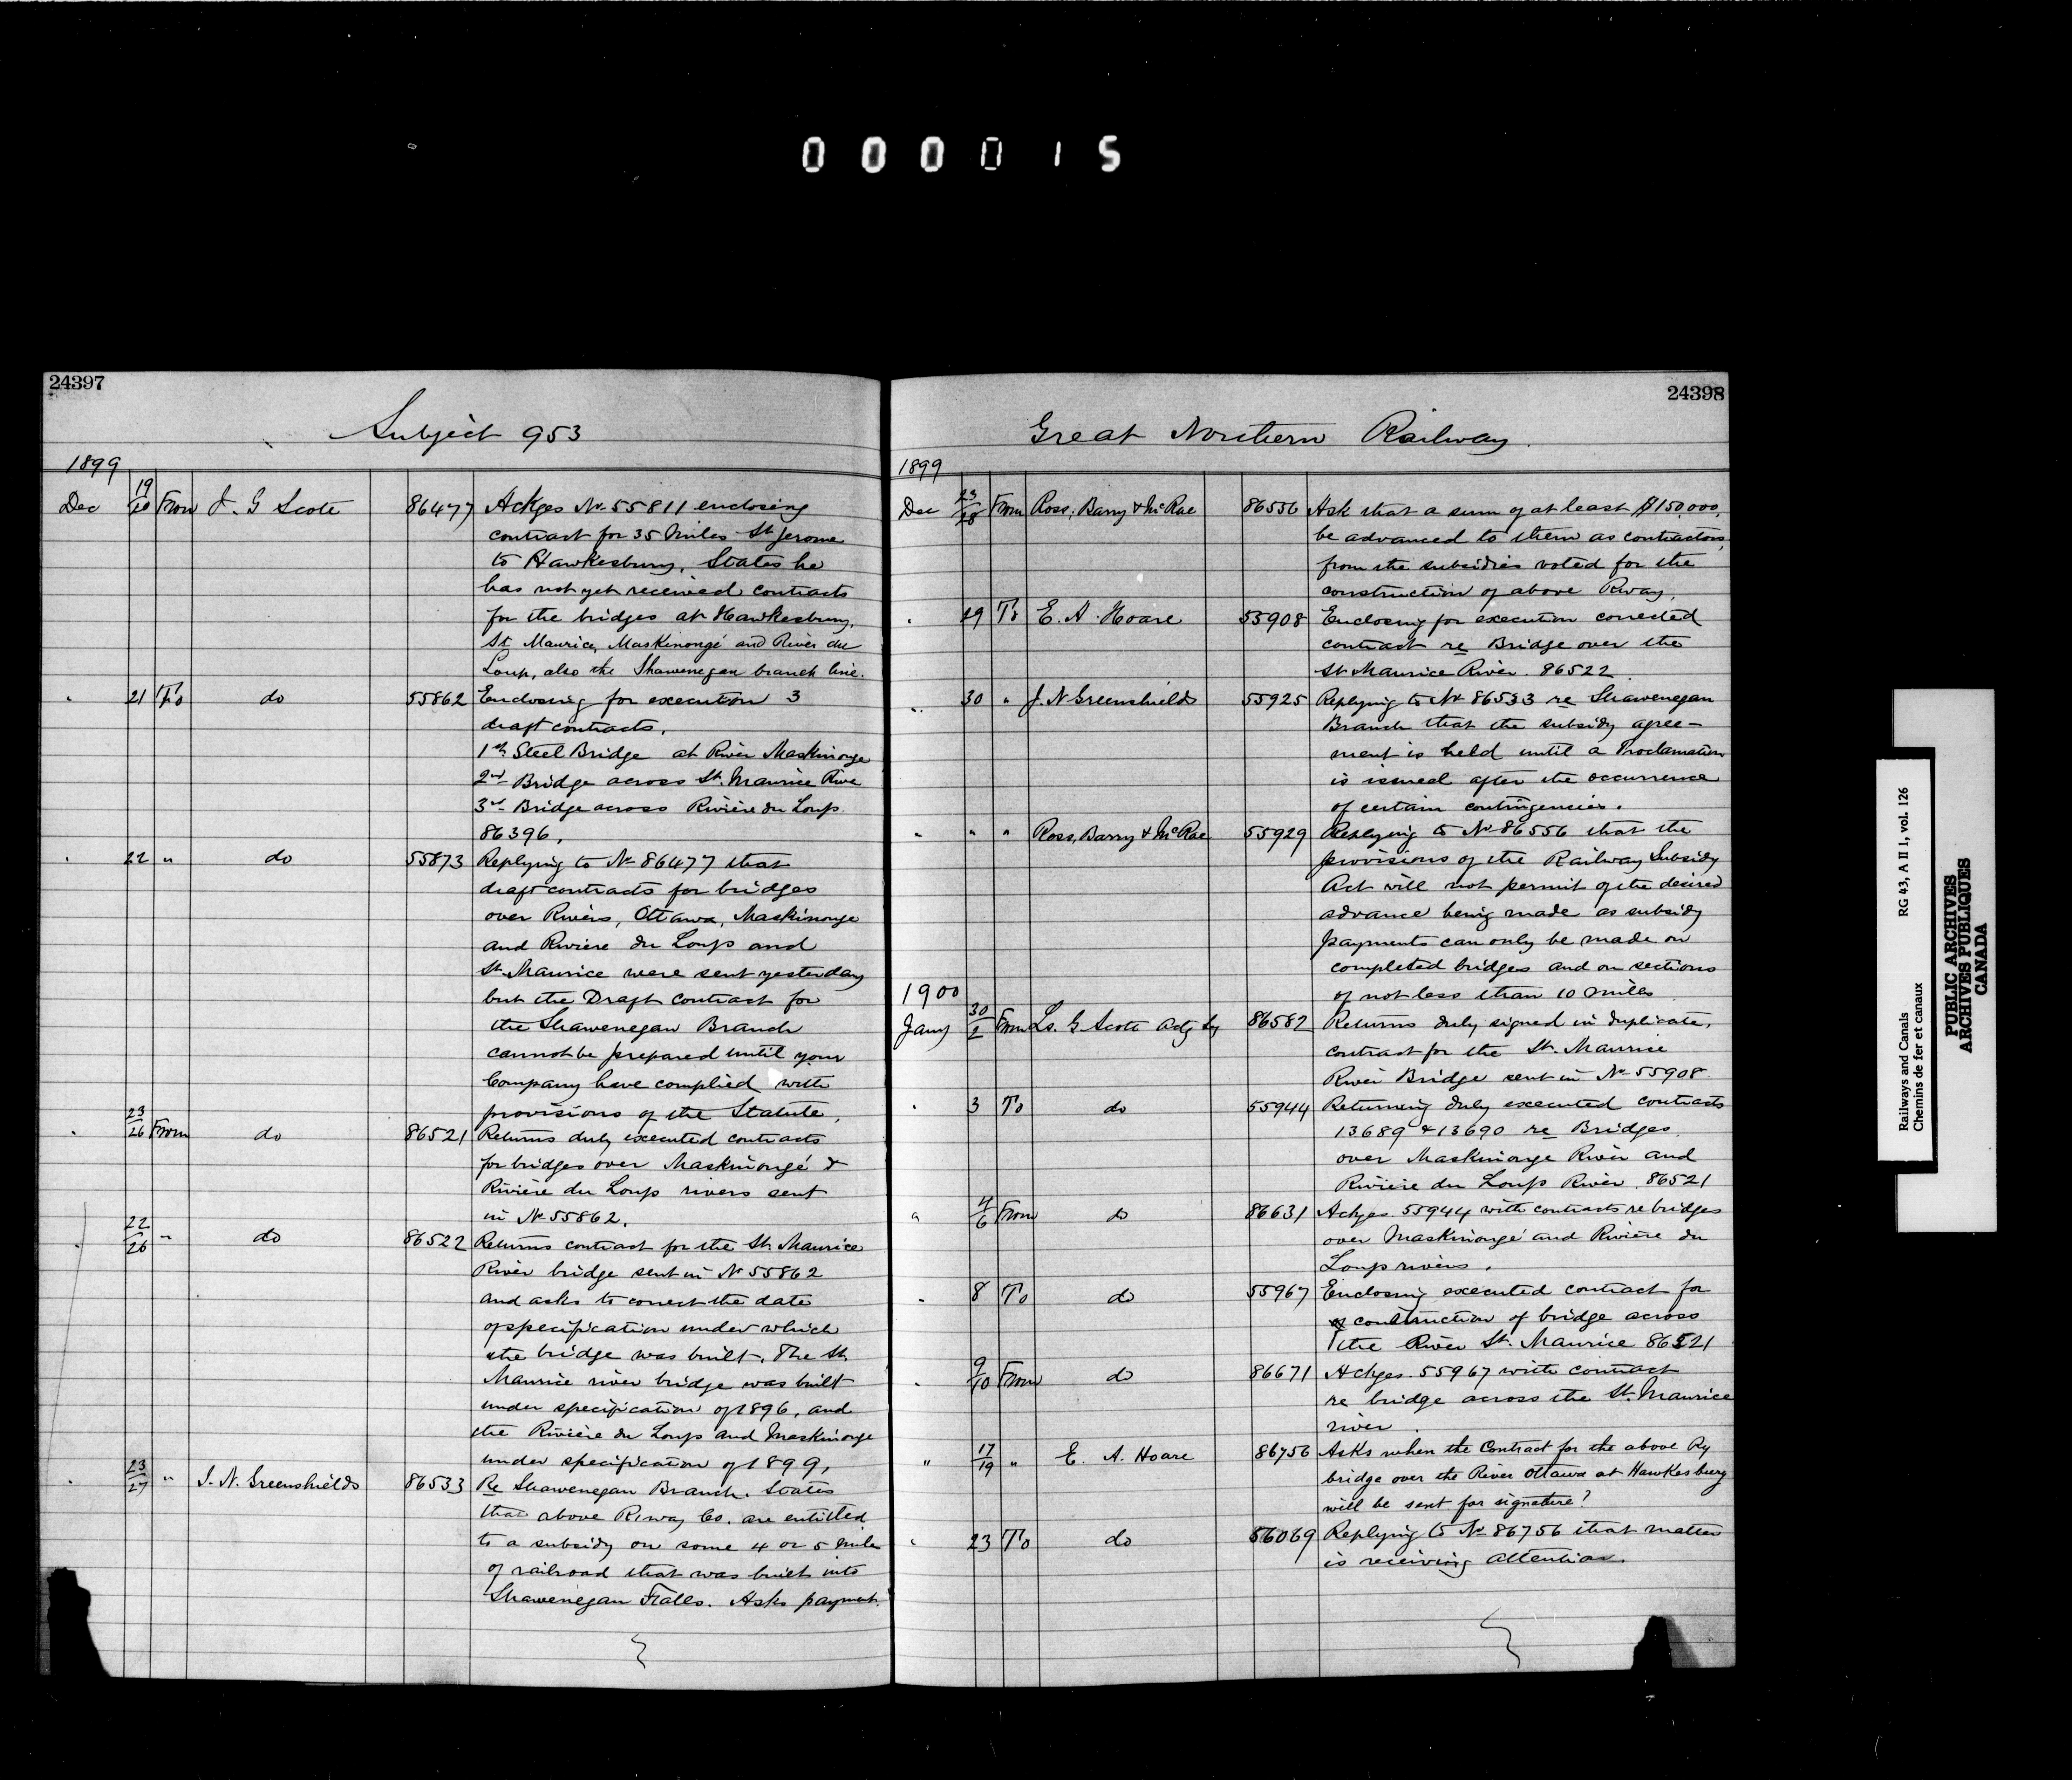 000015
24397
Subject 953
1899
Dec 19/20 From J. G Scott 86477 Ackges No 55811 enclosing
contract for 35 miles St Jerome
to Hawkesbury, States he
has not yet received contracts
for the bridges at Hawkesbury,
St. Maurice, Maskinongé and River du
Loup, also the Shawenegan branch line.
" 21 To do 55862 Enclosing for execution 3
draft contracts,
1st Steel Bridge at River Maskinonge
2nd Bridge across St. Maurice River
3rd Bridge across Rivière du Loup.
86396.
" 22 " do 55873 Replying to No 86477 that
draft contracts for bridges
over Rivers, Ottawa, Maskinonge
and Riviere du Loup and
St. Maurice were sent yesterday
but the Draft contract for
the Shawenegan Branch
cannot be prepared until your
Company have complied with
provisions of the Statute.
" 23/26 From do 86521 Returns duly executed contracts
for bridges over Maskinongé &
Rivière du Loup rivers sent
in No 55862.
" 22/26 " do 86522 Returns contract for the St. Maurice
River bridge sent in No 55862
and asks to correct the date
of specification under which
the bridge was built. The St.
Maurice river bridge was built
under specification of 1896, and
the Rivière du Loup and Maskinonge
under specification of 1899,
" 23/27 " J. N. Greenshields 86533 Re Shawenegan Branch. States
that above Rway Co. are entitled
to a subsidy on some 4 or 5 miles
of railroad that was built into
Shawenegan Falls. Asks payment.
24398
Great Northern Railway.
1899
Dec 23/28 From Ross, Barry & McRae 86556 Ask that a sum of at least $150,000,
be advanced to them as contractors,
from the subsidies voted for the
construction of above Rway.
" 29 To E. A. Hoare 55908 Enclosing for execution corrected
contract re Bridge over the
St Maurice River. 86522
" 30 " J. N Greenshields 55925 Replying to No 86533 re Shawenegan
Branch that the subsidy agree-
ment is held until a Proclamation
is issued after the occurrence
of certain contingencies.
" " " Ross, Barry & McRae 55929 Replying to No 86556 that the
provisions of the Railway Subsidy
Act will not permit of the desired
advance being made as subsidy
payments can only be made on
completed bridges and on sections
of not less than 10 miles
1900
Jany 30/2 From Ls. G. Scott Actg Sy 86582 Returns duly signed in duplicate,
contract for the St. Maurice
River Bridge sent in No 55908
" 3 To do 55944 Returning duly executed contracts
13689 & 13690 re Bridges
over Maskinonge River and
Riviere du Loup River. 86521
" 4/6 From do 86631 Ackges. 55944 with contracts re bridges
over Maskinongé and Rivière du
Loup rivers.
" 8 To do 55967 Enclosing executed contract for
construction of bridge across
the River St. Maurice 86521
" 9/10 From do 86671 Ackges. 55967 with contract
re bridge across the St. Maurice
river.
" 17/19 " E. A. Hoare 86756 Asks when the Contract for the above Ry
bridge over the River Ottawa at Hawkesburg
will be sent for signature?
" 23 To do 56069 Replying to No 86756 that matter
is receiving attention.
Railways and Canals RG 43, A II 1, vol. 126
Chemins de fer et canaux
PUBLIC ARCHIVES
ARCHIVES PUBLIQUES
CANADA